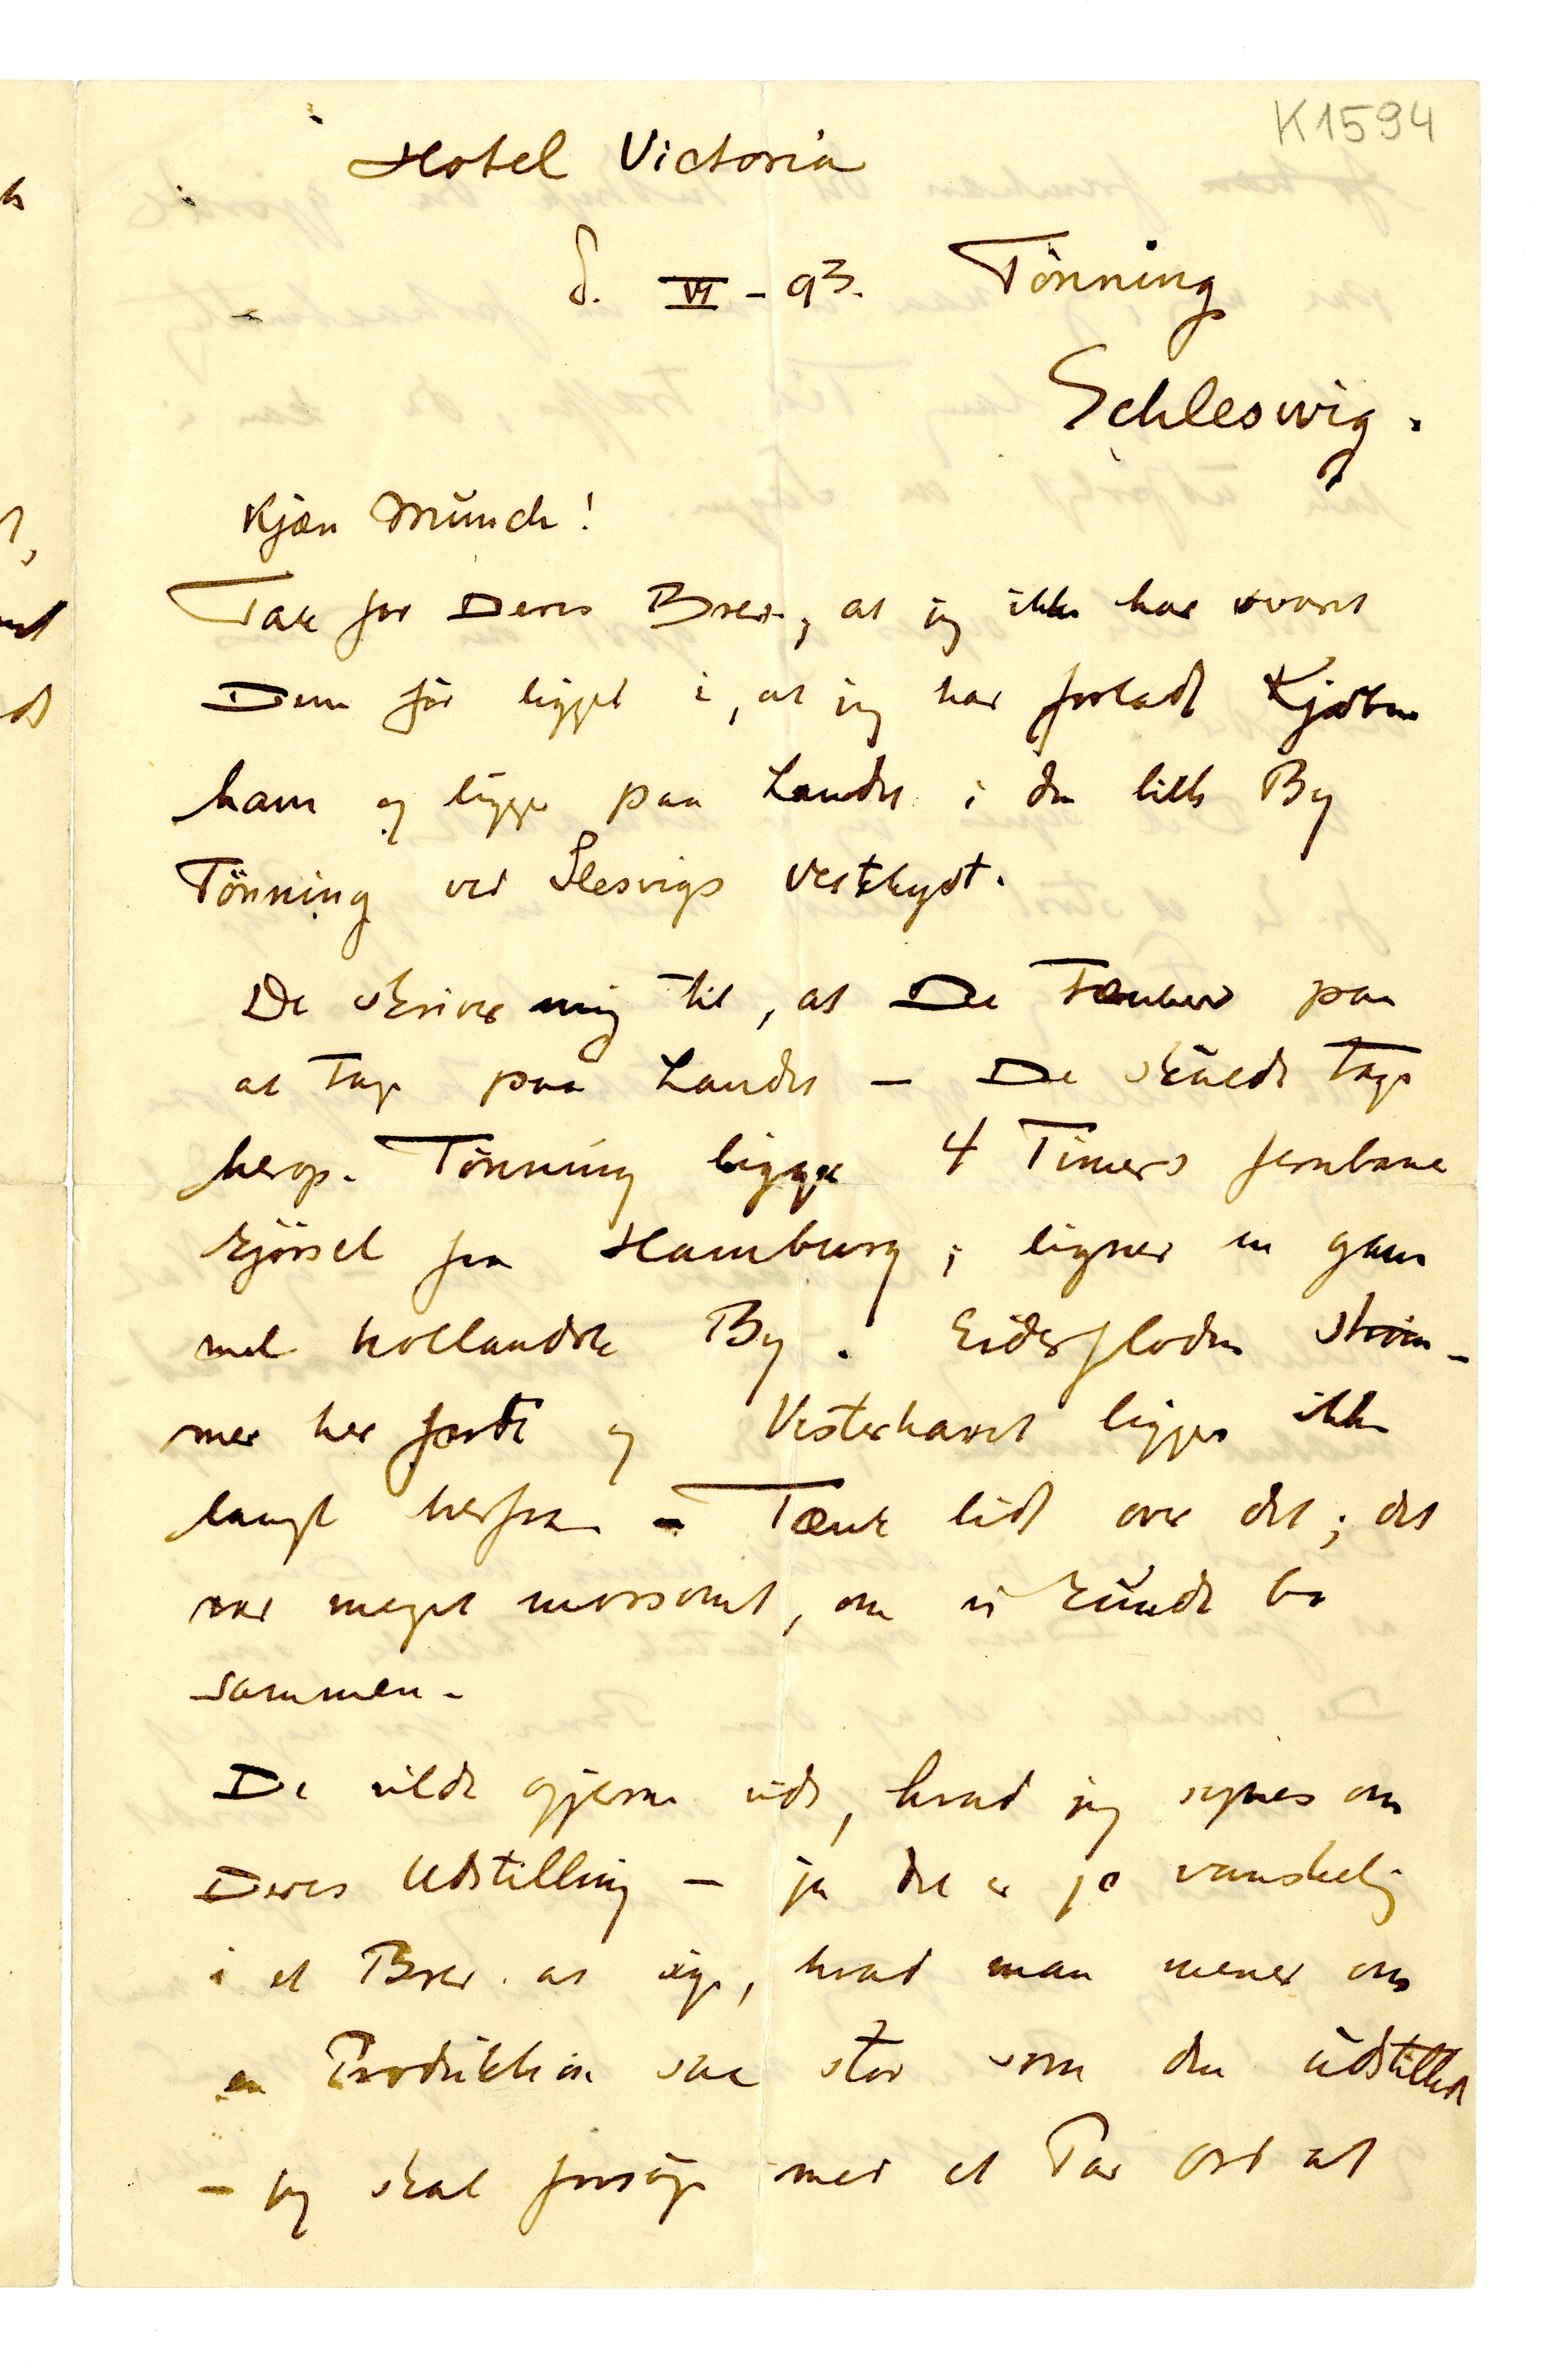 K1594
Hotel Victoria
d. VI - 93. Tönning
Schleswig.
Kjære Munch!
Tak for Deres Brev, at jeg ikke har svaret
Dem før ligget i, at jeg har forladt Kjøben
havn og ligger paa Landet i den lille By
Tönning ved Slesvigs Vestkyst.
De skriver mig til, at De tænker paa
at tage paa Landet – De skulde tage
herop. Tönning ligger 4 Timers Jernbane
kjørsel fra Hamburg; ligner en gam
mel hollandsk By. Eiderfloden strøm-
mer her forbi og Vesterhavet ligger ikke
langt herfra – Tænk lidt over det; det
var meget morsomt, om vi kunde bo
sammen.
De vilde gjerne vide, hvad jeg synes om
Deres Udstilling – ja det er jo vanskelig
i et Brev at sige, hvad man mener om
en Produktion saa stor som den udstillede
– jeg skal forsøge med et Par Ord at